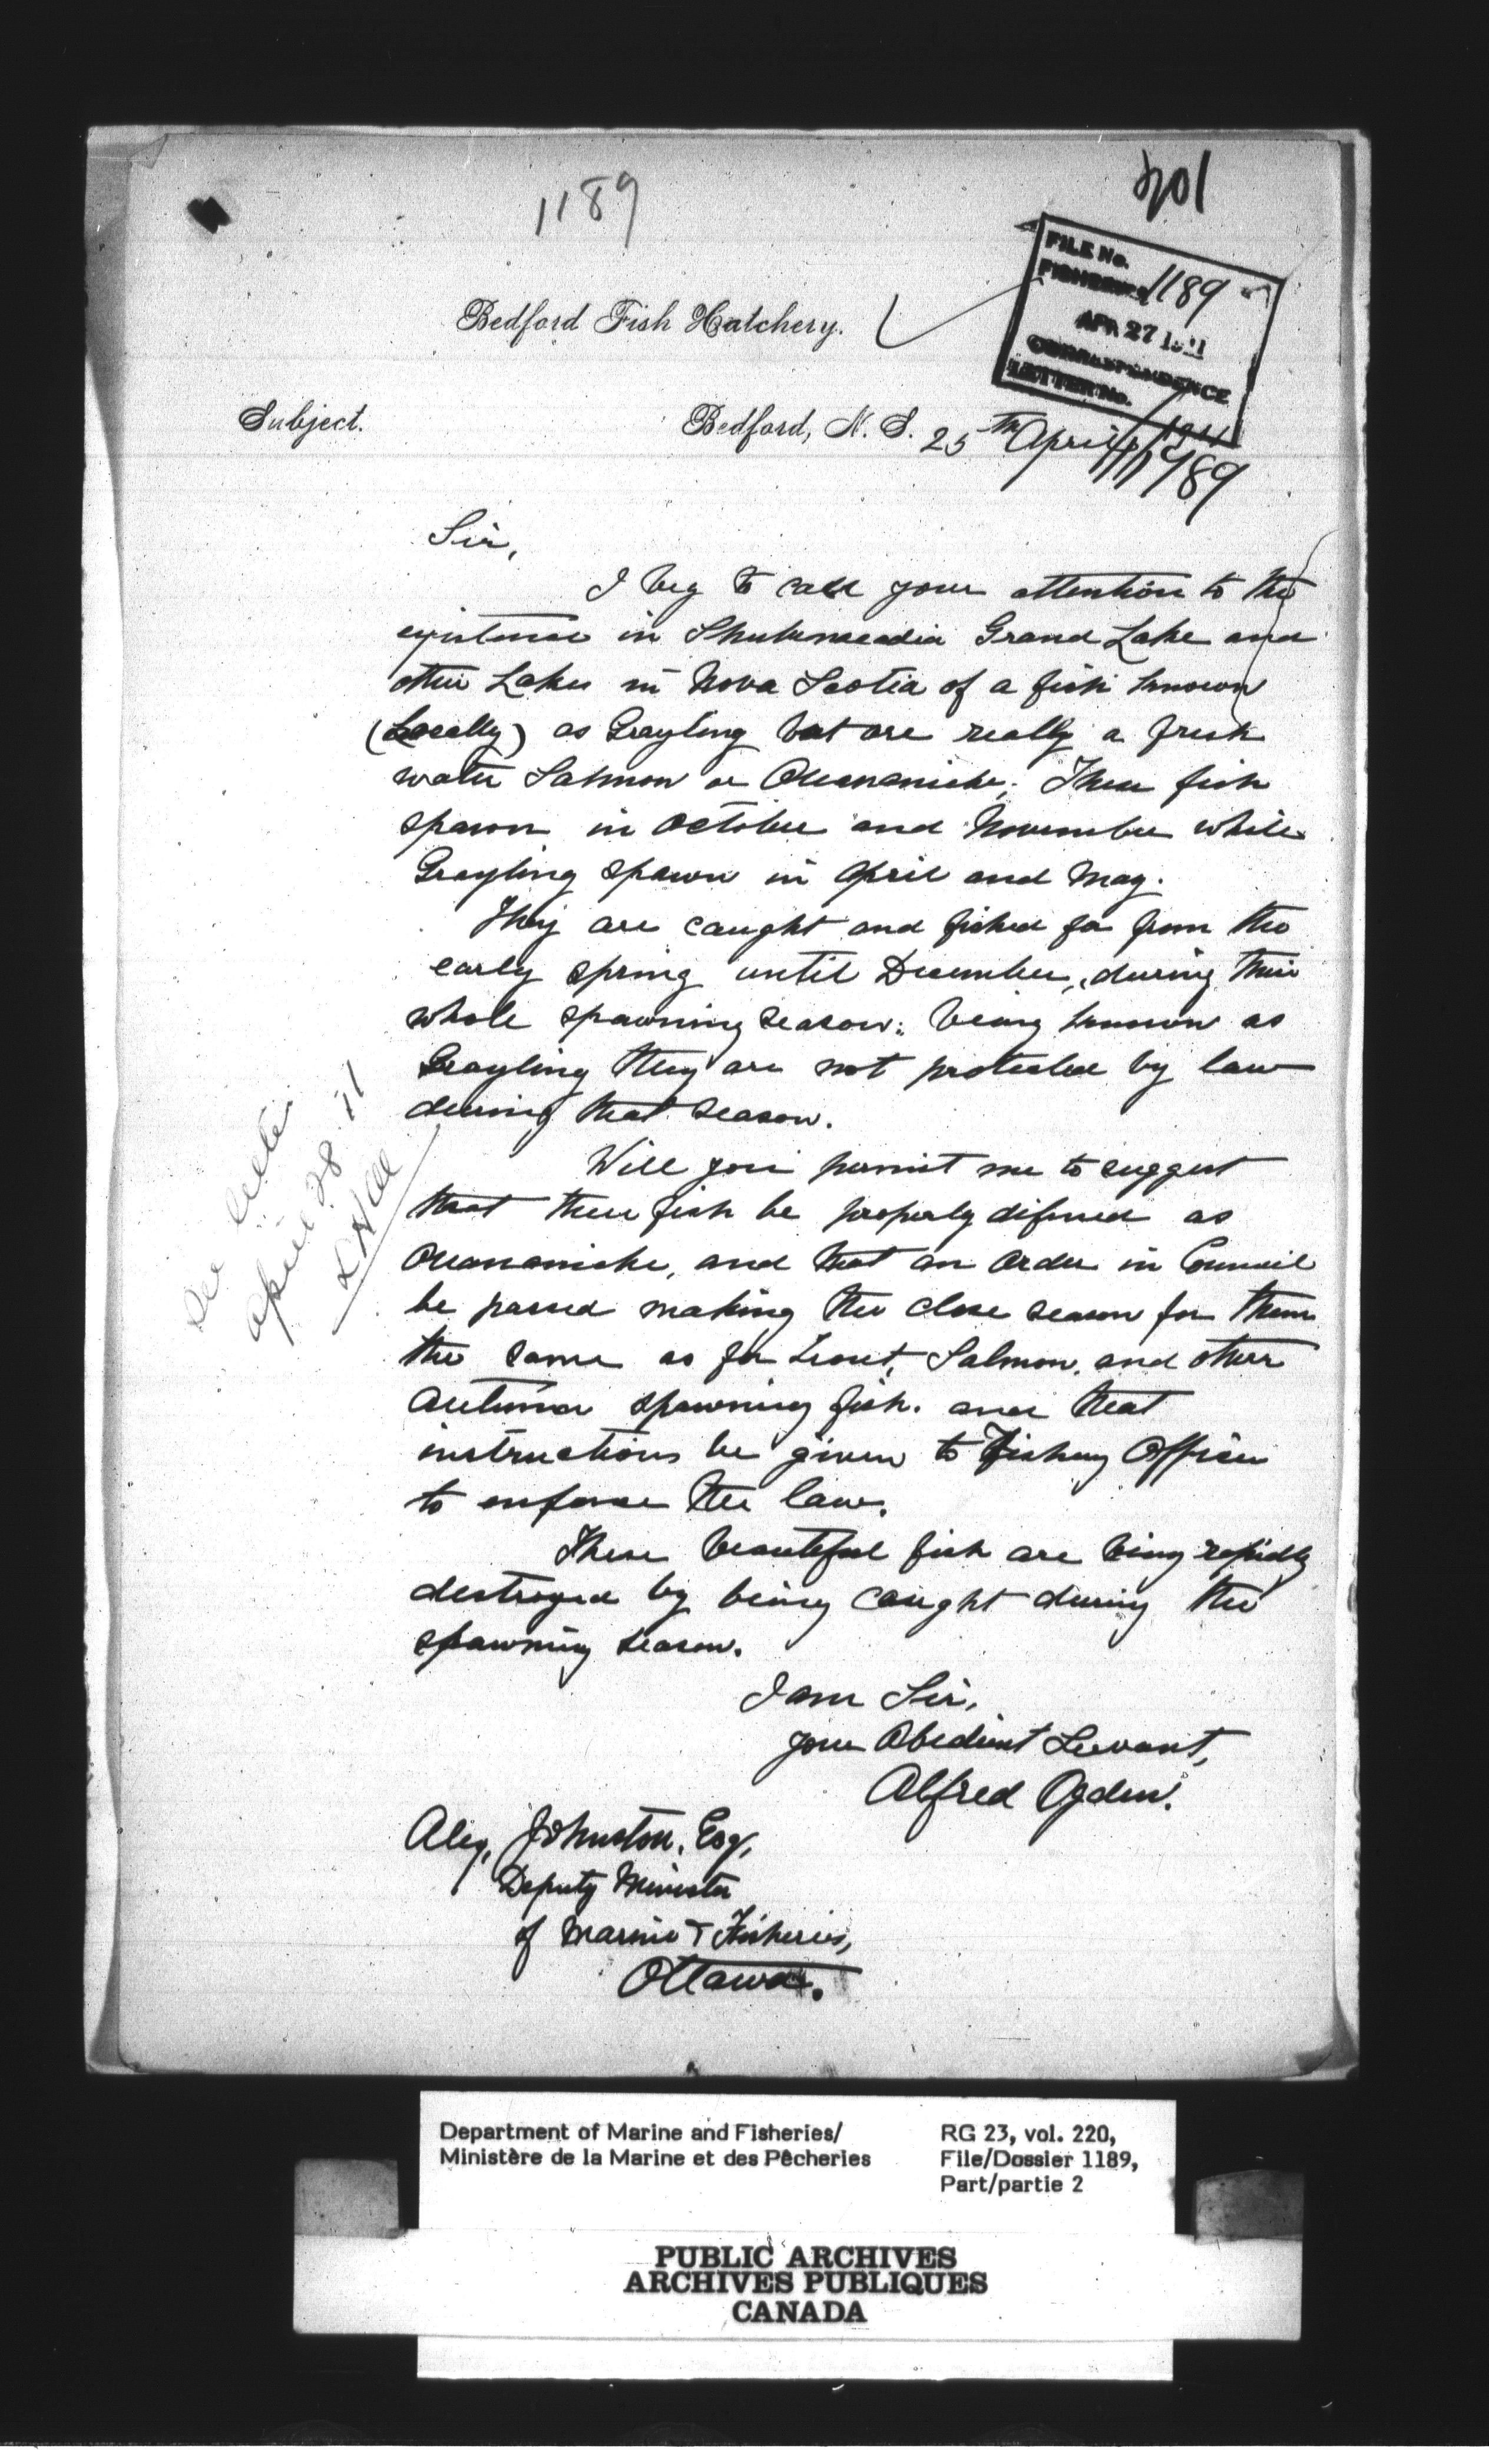 1189
201
FILE No.
FISHERIES 1189
APR 27 1911
CORRESPONDENCE
LETTER No.
Bedford Fish Hatchery.
Subject.
Bedford, N. S. 25th April 1911
1189
Sir,
I beg to call your attention to the
existence in Shubenacadia Grand Lake and
other Lakes in Nova Scotia of a fish known
(Locally) as Grayling but are really a fresh
water Salmon or Ouananiche; These fish
spawn in October and November while
Grayling spawn in April and May.
They are caught and fished for from the
early spring until December, during their
whole spawning season: being known as
Grayling they are not protected by law
during that season.
Will you permit me to suggest
that these fish be properly defined as
Ouananiche, and that an Order in Council
be passed making the close season for them
the same as for trout, Salmon, and other
autumn spawning fish. and that
instructions be given to Fishery Officers
to enforce the law.
These beautiful fish are being rapidly
destroyed by being caught during the
spawning season.
I am Sir,
your Obedient Servant,
Alfred Ogden.
See letter
April 28 11
Alex, Johnston, Esq,
Deputy Minister
of Marine & Fisheries,
Ottawa.
Department of Marine and Fisheries/
Ministère de la Marine et des Pêcheries
RG 23, vol. 220,
File/Dossier 1189,
Part/partie 2
PUBLIC ARCHIVES
ARCHIVES PUBLIQUES
CANADA